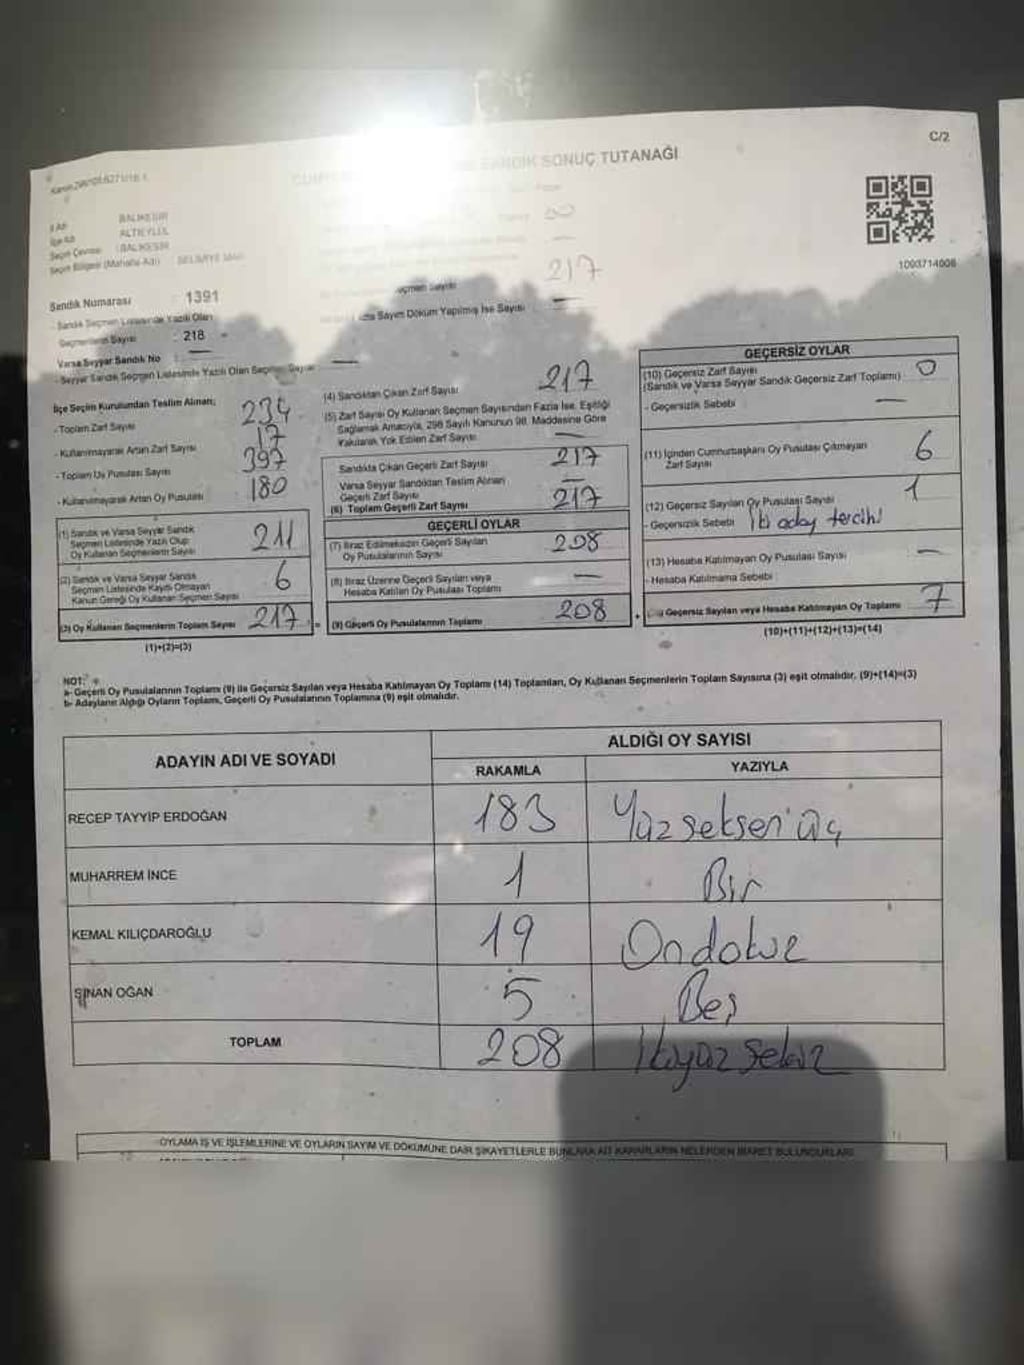 C/2
SANDIK SONUÇ TUTANAĞI
İl Adı BALIKESİR
İlçe Adı ALTIEYLÜL
Seçim Çevresi BALIKESİR
Seçim Bölgesi (Mahalle Adı)
1003714006
217
Sandık Numarası : 1391
- Sandık Seçmen Listesinde Yazılı Olan
Seçmenlerin Sayısı : 218
Sayım Döküm Yapılmış İse Sayısı —
Varsa Seyyar Sandık No : —
- Seyyar Sandık Seçmen Listesinde Yazılı Olan Seçmen Sayısı —
İlçe Seçim Kurulundan Teslim Alınan;
- Toplam Zarf Sayısı 234
- Kullanılmayarak Artan Zarf Sayısı 17
- Toplam Oy Pusulası Sayısı 397
- Kullanılmayarak Artan Oy Pusulası 180
(1) Sandık ve Varsa Seyyar Sandık
Seçmen Listesinde Yazılı Olup
Oy Kullanan Seçmenlerin Sayısı 211
(2) Sandık ve Varsa Seyyar Sandık
Seçmen Listesinde Kayıtlı Olmayan
Kanun Gereği Oy Kullanan Seçmen Sayısı 6
(3) Oy Kullanan Seçmenlerin Toplam Sayısı 217 =
(1)+(2)=(3)
(4) Sandıktan Çıkan Zarf Sayısı 217
(5) Zarf Sayısı Oy Kullanan Seçmen Sayısından Fazla İse, Eşitliği
Sağlamak Amacıyla, 298 Sayılı Kanunun 98. Maddesine Göre
Yakılarak Yok Edilen Zarf Sayısı —
Sandıkta Çıkan Geçerli Zarf Sayısı 217
Varsa Seyyar Sandıktan Teslim Alınan
Geçerli Zarf Sayısı —
(6) Toplam Geçerli Zarf Sayısı 217
GEÇERLİ OYLAR
(7) İtiraz Edilmeksizin Geçerli Sayılan
Oy Pusulalarının Sayısı 208
(8) İtiraz Üzerine Geçerli Sayılan veya
Hesaba Katılan Oy Pusulası Toplamı —
(9) Geçerli Oy Pusulalarının Toplamı 208 +
GEÇERSİZ OYLAR
(10) Geçersiz Zarf Sayısı
(Sandık ve Varsa Seyyar Sandık Geçersiz Zarf Toplamı) 0
- Geçersizlik Sebebi —
(11) İçinden Cumhurbaşkanı Oy Pusulası Çıkmayan
Zarf Sayısı 6
(12) Geçersiz Sayılan Oy Pusulası Sayısı 1
- Geçersizlik Sebebi İki aday tercihi
(13) Hesaba Katılmayan Oy Pusulası Sayısı —
- Hesaba Katılmama Sebebi
Geçersiz Sayılan veya Hesaba Katılmayan Oy Toplamı 7
(10)+(11)+(12)+(13)=(14)
NOT:
a- Geçerli Oy Pusulalarının Toplamı (9) ile Geçersiz Sayılan veya Hesaba Katılmayan Oy Toplamı (14) Toplamları, Oy Kullanan Seçmenlerin Toplam Sayısına (3) eşit olmalıdır. (9)+(14)=(3)
b- Adayların Aldığı Oyların Toplamı, Geçerli Oy Pusulalarının Toplamına (9) eşit olmalıdır.
ADAYIN ADI VE SOYADI
ALDIĞI OY SAYISI
RAKAMLA YAZIYLA
RECEP TAYYİP ERDOĞAN 183 Yüzseksen üç
MUHARREM İNCE 1 Bir
KEMAL KILIÇDAROĞLU 19 Ondokuz
SİNAN OĞAN 5 Beş
TOPLAM 208 İkiyüz Sekiz
OYLAMA İŞ VE İŞLEMLERİNE VE OYLARIN SAYIM VE DÖKÜMÜNE DAİR ŞİKAYETLERLE BUNLARA AİT KARARLARIN NELERDEN İBARET BULUNDUKLARI